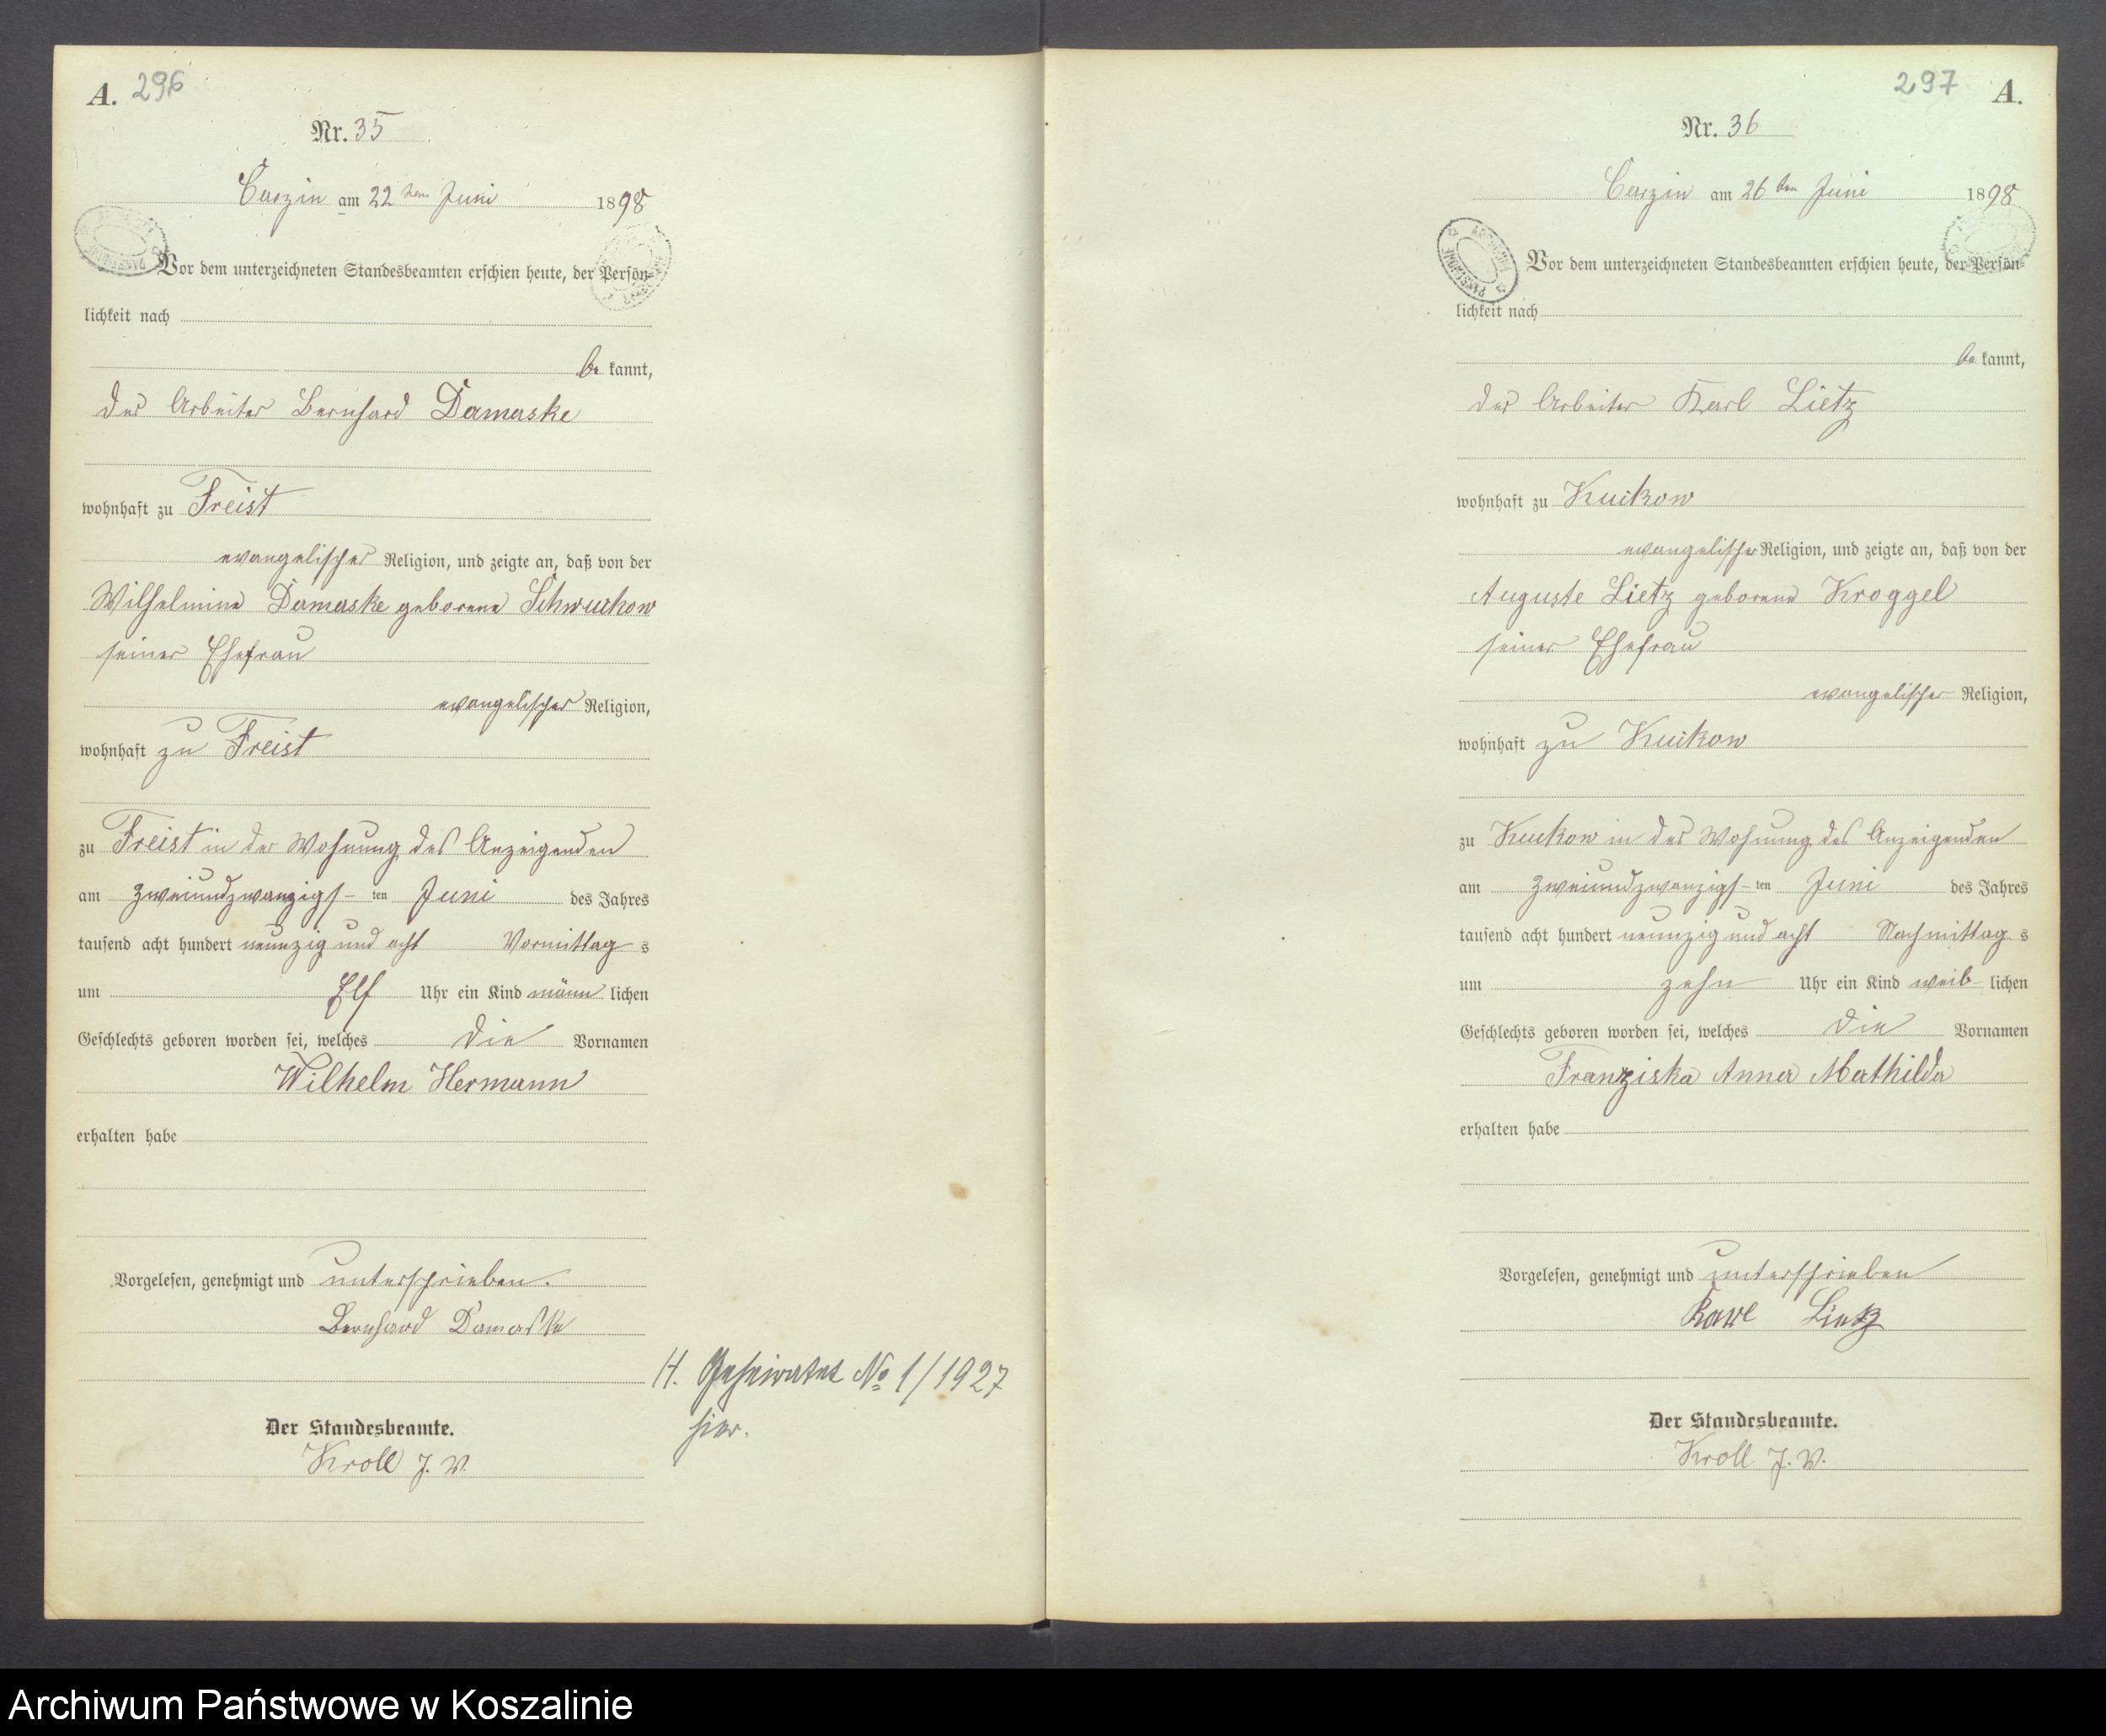 A. 296
Nr. 35
Carzin am 22ten Juni 1898
Vor dem unterzeichneten Standesbeamten erschien heute, der Persön-
lichkeit nach
be kannt,
der Arbeiter Bernhard Damaske
wohnhaft zu Freist
evangelischer Religion, und zeigte an, daß von der
Wilhelmine Damaske geborene Schwuchow
seiner Ehefrau
evangelischer Religion,
wohnhaft zu Freist
zu Freist in der Wohnung des Anzeigenden
am zweiundzwanzigs-ten Juni des Jahres
tausend acht hundert neunzig und acht Vormittag s
um Elf Uhr ein Kind männ lichen
Geschlechts geboren worden sei, welches die Vornamen
Wilhelm Hermann
erhalten habe
Vorgelesen, genehmigt und unterschrieben.
Bernhard Damaske
H. Geheiratet No 1/1927
hier.
Der Standesbeamte.
Kroll J. V.
297 A.
Nr. 36
Carzin am 26ten Juni 1898
Vor dem unterzeichneten Standesbeamten erschien heute, der Persön-
lichkeit nach
be kannt,
der Arbeiter Karl Lietz
wohnhaft zu Kukow
evangelischer Religion, und zeigte an, daß von der
Auguste Lietz geborene Kroggel
seiner Ehefrau
evangelischer Religion,
wohnhaft zu Kukow
zu Kukow in der Wohnung des Anzeigenden
am zweiundzwanzigs-ten Juni des Jahres
tausend acht hundert neunzig und acht Nachmittag s
um zehn Uhr ein Kind weib- lichen
Geschlechts geboren worden sei, welches die Vornamen
Franziska Anna Mathilda
erhalten habe
Vorgelesen, genehmigt und unterschrieben
Karl Lietz
Der Standesbeamte.
Kroll J. V.
Archiwum Państwowe w Koszalinie